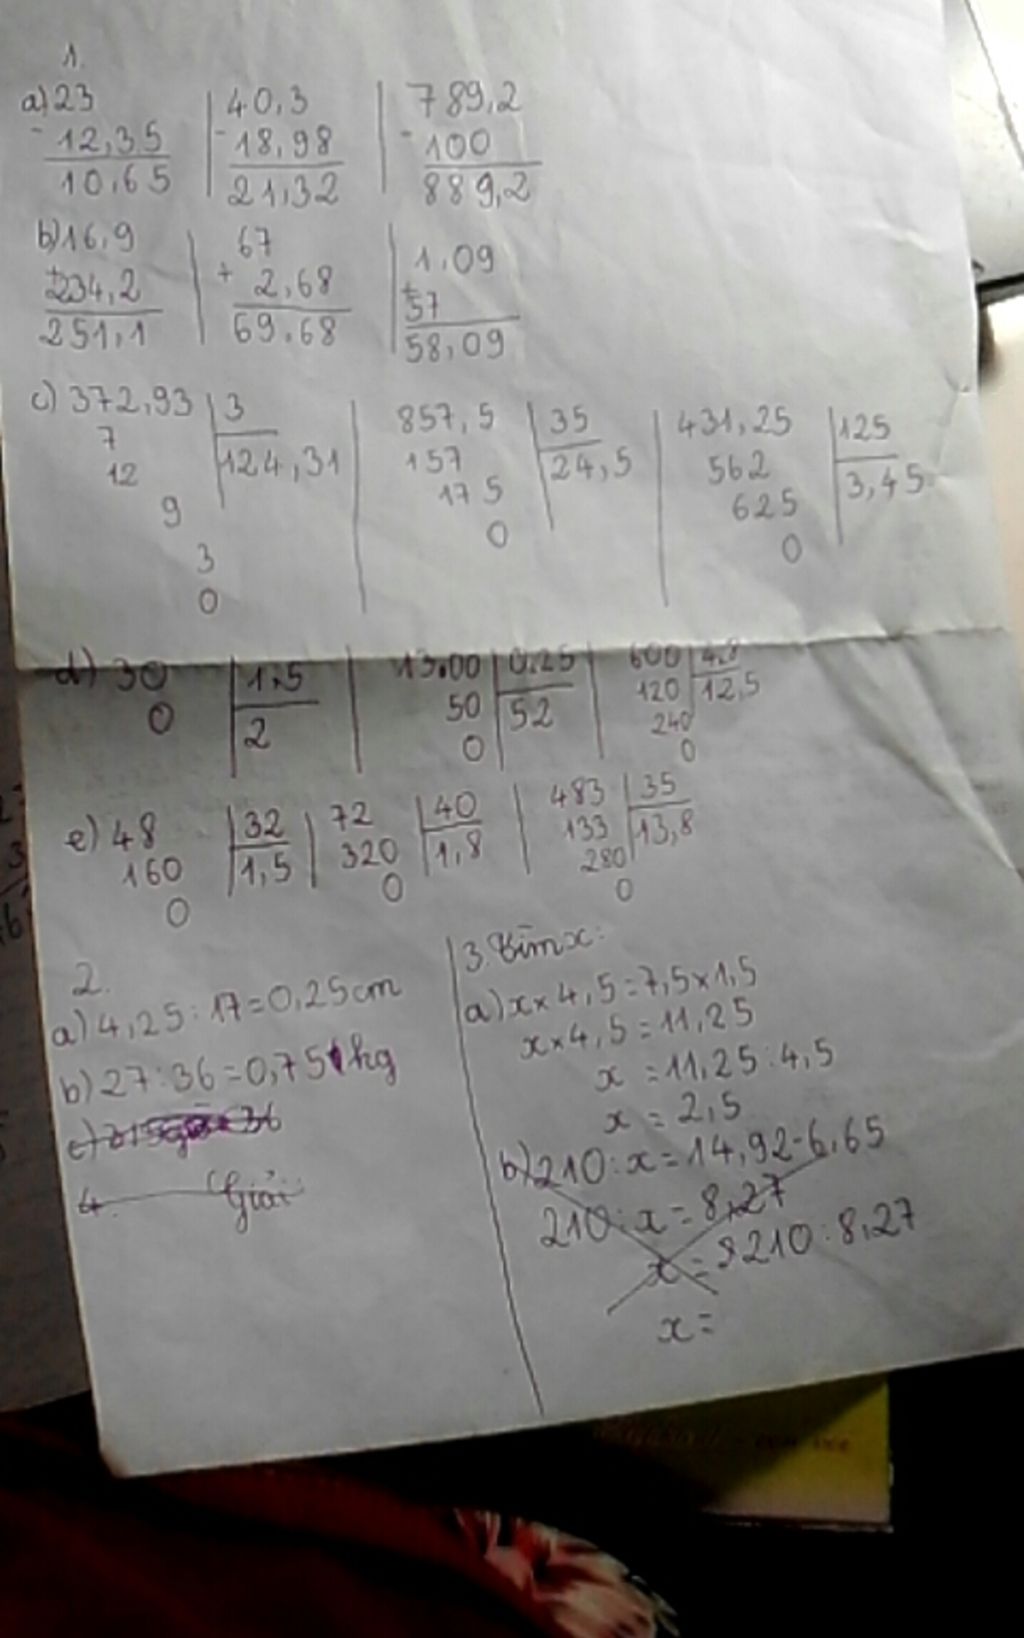 1.
a) 23 | 40,3 | 789,2
- 12,35 | - 18,98 | - 100
10,65 | 21,32 | 889,2
b) 16,9 | 67 | 1,09
+ 234,2 | + 2,68 | + 57
251,1 | 69,68 | 58,09
c) 372,93 | 3 | 857,5 | 35 | 431,25 | 125
7 | 124,31 | 157 | 24,5 | 562 | 3,45
12 | 175 | 625
9 | 0 | 0
3
0
d) 30 | 1,5 | 13,00 | 0,25 | 600 | 4,8
0 | 2 | 50 | 52 | 120 | 12,5
0 | 240
0
e) 48 | 32 | 72 | 40 | 483 | 35
160 | 1,5 | 320 | 1,8 | 133 | 13,8
0 | 0 | 280
0
2.
a) 4,25 : 17 = 0,25 cm
b) 27 : 36 = 0,75 kg
c)
4. Giải
3. Tìm x:
a) x × 4,5 = 7,5 × 1,5
x × 4,5 = 11,25
x = 11,25 : 4,5
x = 2,5
b) 210 : x = 14,92 - 6,65
210 : x = 8,27
x = 210 : 8,27
x =